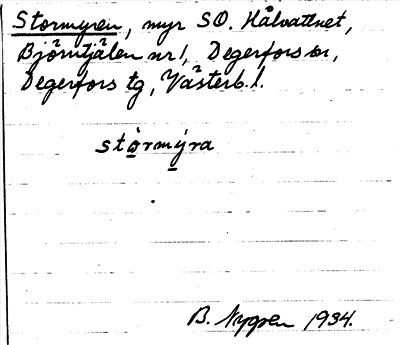 Stormyren, myr SO. Hålvattnet,
Björntjälen nr 1, Degerfors sn,
Degerfors tg, Västerb. l.
stòrmýra
B. Nygren 1934.